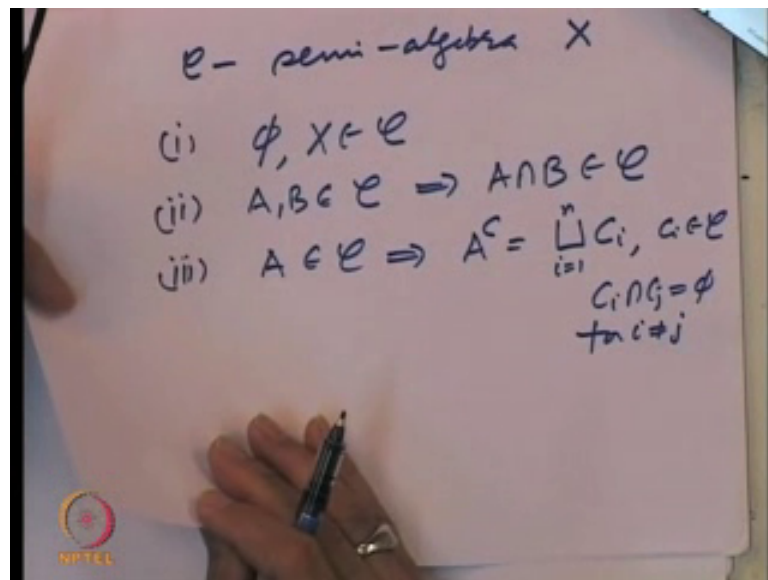 𝒞 - semi-algebra X
(i) ϕ, X ∈ 𝒞
(ii) A, B ∈ 𝒞 ⇒ A ∩ B ∈ 𝒞
(iii) A ∈ 𝒞 ⇒ Aᶜ = ⊔ᵢ₌₁ⁿ Cᵢ, Cᵢ ∈ 𝒞
Cᵢ ∩ Cⱼ = ϕ
for i ≠ j
NPTEL